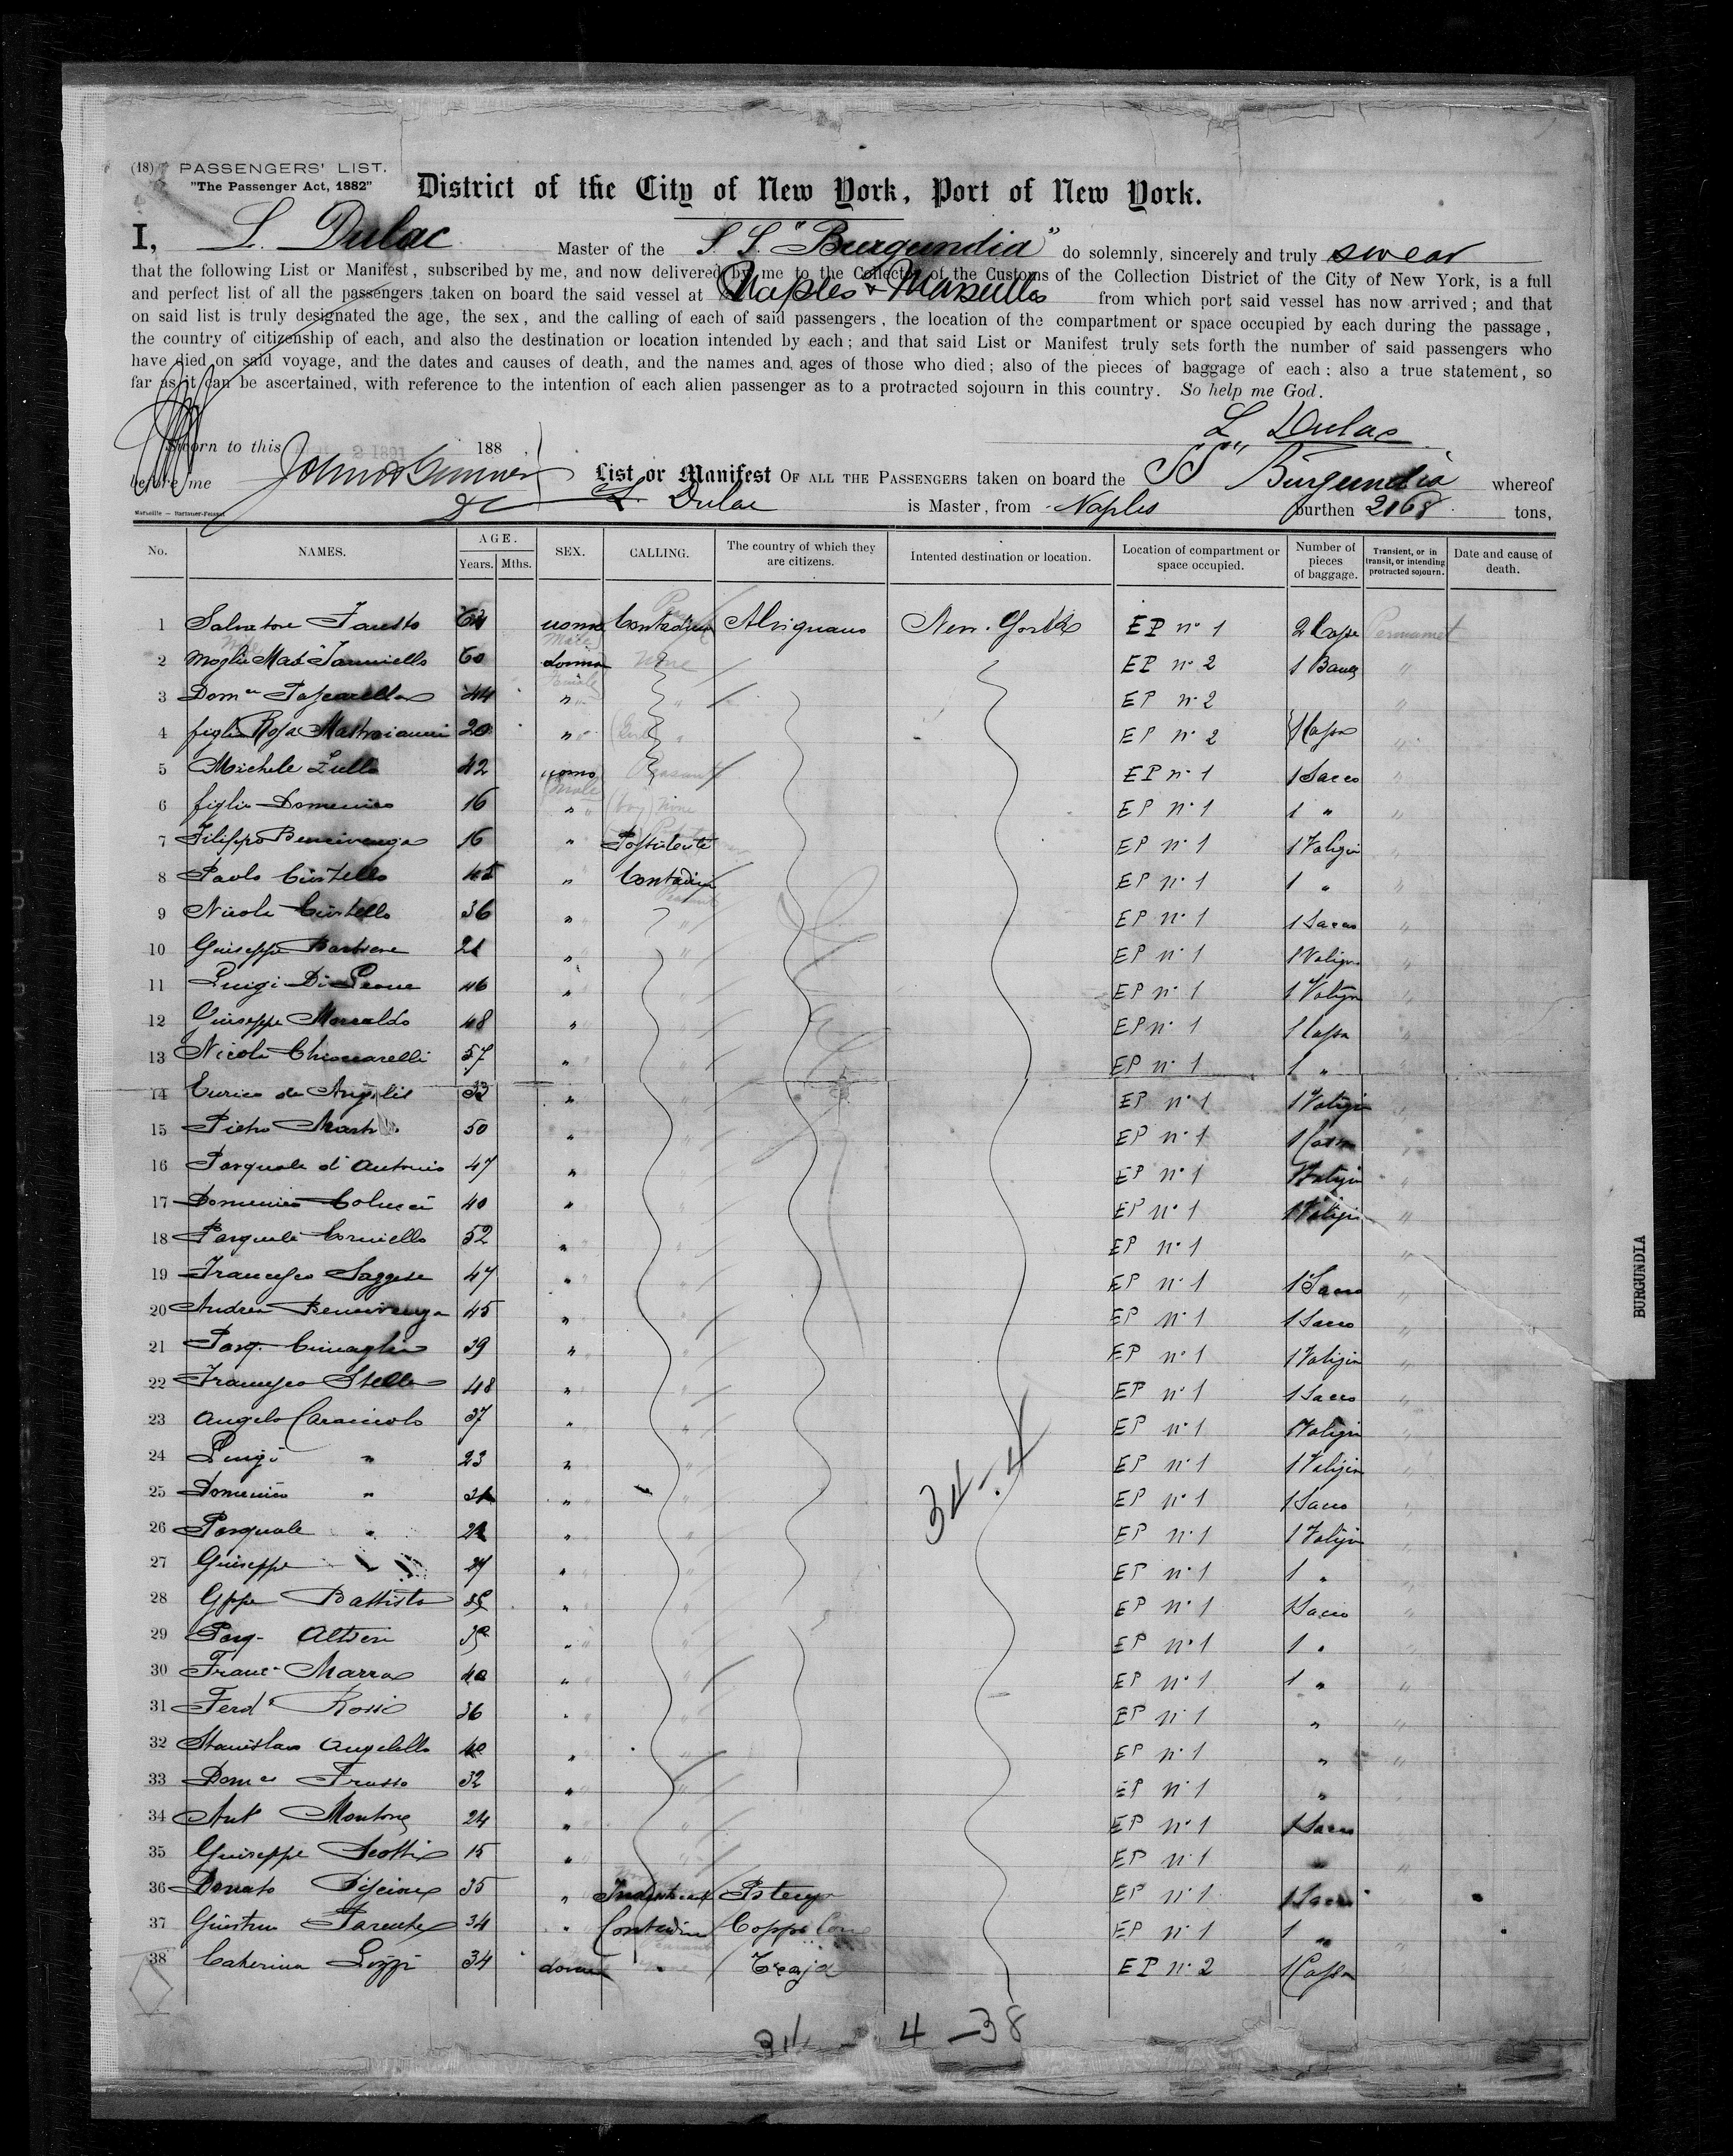 (18) PASSENGERS' LIST.
"The Passenger Act, 1882"
District of the City of New York, Port of New York.
I, L. Dulac Master of the S S. "Burgundia" do solemnly, sincerely and truly swear
that the following List or Manifest, subscribed by me, and now delivered by me to the Collector of the Customs of the Collection District of the City of New York, is a full
and perfect list of all the passengers taken on board the said vessel at Naples & Marseilles from which port said vessel has now arrived; and that
on said list is truly designated the age, the sex, and the calling of each of said passengers, the location of the compartment or space occupied by each during the passage,
the country of citizenship of each, and also the destination or location intended by each; and that said List or Manifest truly sets forth the number of said passengers who
have died on said voyage, and the dates and causes of death, and the names and ages of those who died; also of the pieces of baggage of each: also a true statement, so
far as it can be ascertained, with reference to the intention of each alien passenger as to a protracted sojourn in this country. So help me God.
L Dulac
Sworn to this 2 1891 188
before me
List or Manifest OF ALL THE PASSENGERS taken on board the SS Burgundia whereof
L. Dulac is Master, from Naples burthen 2168 tons,
No. NAMES. AGE. Years. Mths. SEX. CALLING. The country of which they are citizens. Intented destination or location. Location of compartment or space occupied. Number of pieces of baggage. Transient, or in transit, or intending protracted sojourn. Date and cause of death.
1 Salvatore Fausto uomo Contadino Alvignano New-York EP nº 1 2 Casse Permanent
2 Moglie Mad Ianniello 60 donna None EP nº 2 1 "
3 Domca Pascarella 44 " " EP nº 2 "
4 figlia Rosa Mastroianni 20 " " EP nº 2 1 Cassa "
5 Michele Zullo 42 uomo Peasant EP nº 1 1 Sacco "
6 figlio Domenico 16 " (boy) None EP nº 1 1 " "
7 Filippo Bencivenga 16 " EP nº 1 1 Valigia "
8 Paolo Civitello 45 " Contadino EP nº 1 1 " "
9 Nicola Civitello 36 " " EP nº 1 1 Sacco "
10 Giuseppe Barbiere " " EP nº 1 1 Valigia "
11 Luigi Di Leone 46 " " EP nº 1 1 Valigia "
12 Giuseppe Marcaldo 48 " " EP nº 1 1 Cassa "
13 Nicola Chiavarelli 57 " " EP nº 1 1 " "
14 Enrico de Angelis 33 " " EP nº 1 1 Valigia "
15 Pietro 50 " " EP nº 1 1 Cassa "
16 Pasquale d'Antonio 47 " " EP nº 1 1 Valigia "
17 Domenico Colucci 40 " " EP nº 1 1 Valigia "
18 Pasquale Corniello 52 " " EP nº 1 "
19 Francesco Saggese 47 " " EP nº 1 1 Sacco "
20 Andrea Bencivenga 45 " " EP nº 1 1 Sacco "
21 Pasq. Cimaglia 39 " " EP nº 1 1 Valigia "
22 Francesco Stella 48 " " EP nº 1 1 Sacco "
23 Angelo Caracciolo 37 " " EP nº 1 1 Valigia "
24 Luigi " 23 " " EP nº 1 1 Valigia "
25 Domenico " " " EP nº 1 1 Sacco "
26 Pasquale " " " EP nº 1 1 Valigia "
27 Giuseppe " " " EP nº 1 1 " "
28 Gppe Battista " " EP nº 1 1 Sacco "
29 Pasq. Altieri " " EP nº 1 1 " "
30 Franc. Marra 40 " " EP nº 1 1 " "
31 Ferdo Rossi 36 " " EP nº 1 " "
32 Stanislao Angelillo 40 " " EP nº 1 " "
33 Domco Frasso 32 " " EP nº 1 " "
34 Anto Montone 24 " " EP nº 1 1 Sacco "
35 Giuseppe Scotti 15 " " EP nº 1 " "
36 Donato Piscione 35 " EP nº 1 1 Sacco "
37 Giustino Parente 34 " Contadino EP nº 1 1 " "
38 Caterina Lizzi 34 donna EP nº 2 1 Cassa
34-4
34 4 - 38
BURGUNDIA